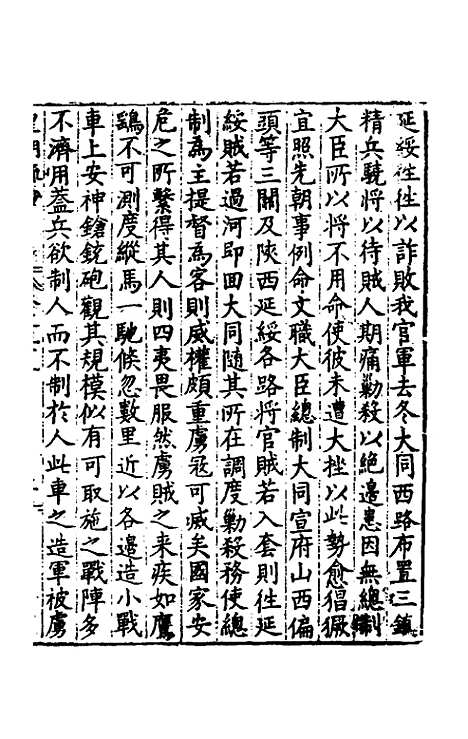 延綏徃徃以詐敗我官軍去冬大同西路布置三鎮
精兵驍將以待賊人期痛勦殺以絕邊患因無總制
大臣所以將不用命使彼未遭大挫以此勢愈猖獗
宜照先朝事例命文職大臣總制大同宣府山西偏
頭等三關及陝西延綏各路將官賊若入套則徃延
綏賊若過河即囬大同隨其所在調度勦殺務使總
制為主提督為客則威權頗重虜冦可滅矣國家安
危之所繫得其人則四夷畏服然虜賊之来疾如鷹
鷂不可測度縱馬一馳倐忽數里近以各邊造小戰
車上安神鎗銃砲觀其規模似有可取施之戰陣多
不濟用葢兵欲制人而不制於人此車之造軍被虜